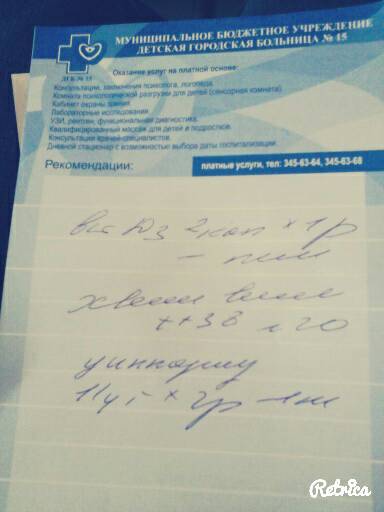 МУНИЦИПАЛЬНОЕ БЮДЖЕТНОЕ УЧРЕЖДЕНИЕ
ДЕТСКАЯ ГОРОДСКАЯ БОЛЬНИЦА № 15
ДГБ № 15
Оказание услуг на платной основе:
Консультации, заключения психолога, логопеда.
Комната психологической разгрузки для детей (сенсорная комната)
Кабинет охраны зрения.
Лабораторные исследования
УЗИ, рентген, функциональная диагностика.
Квалифицированный массаж для детей и подростков.
Консультации врачей-специалистов.
Дневной стационар с возможностью выбора даты госпитализации.
Рекомендации:
платные услуги, тел: 345-63-64, 345-63-68
вит Д3 2 кап × 1 р
t +38
2р
Retrica